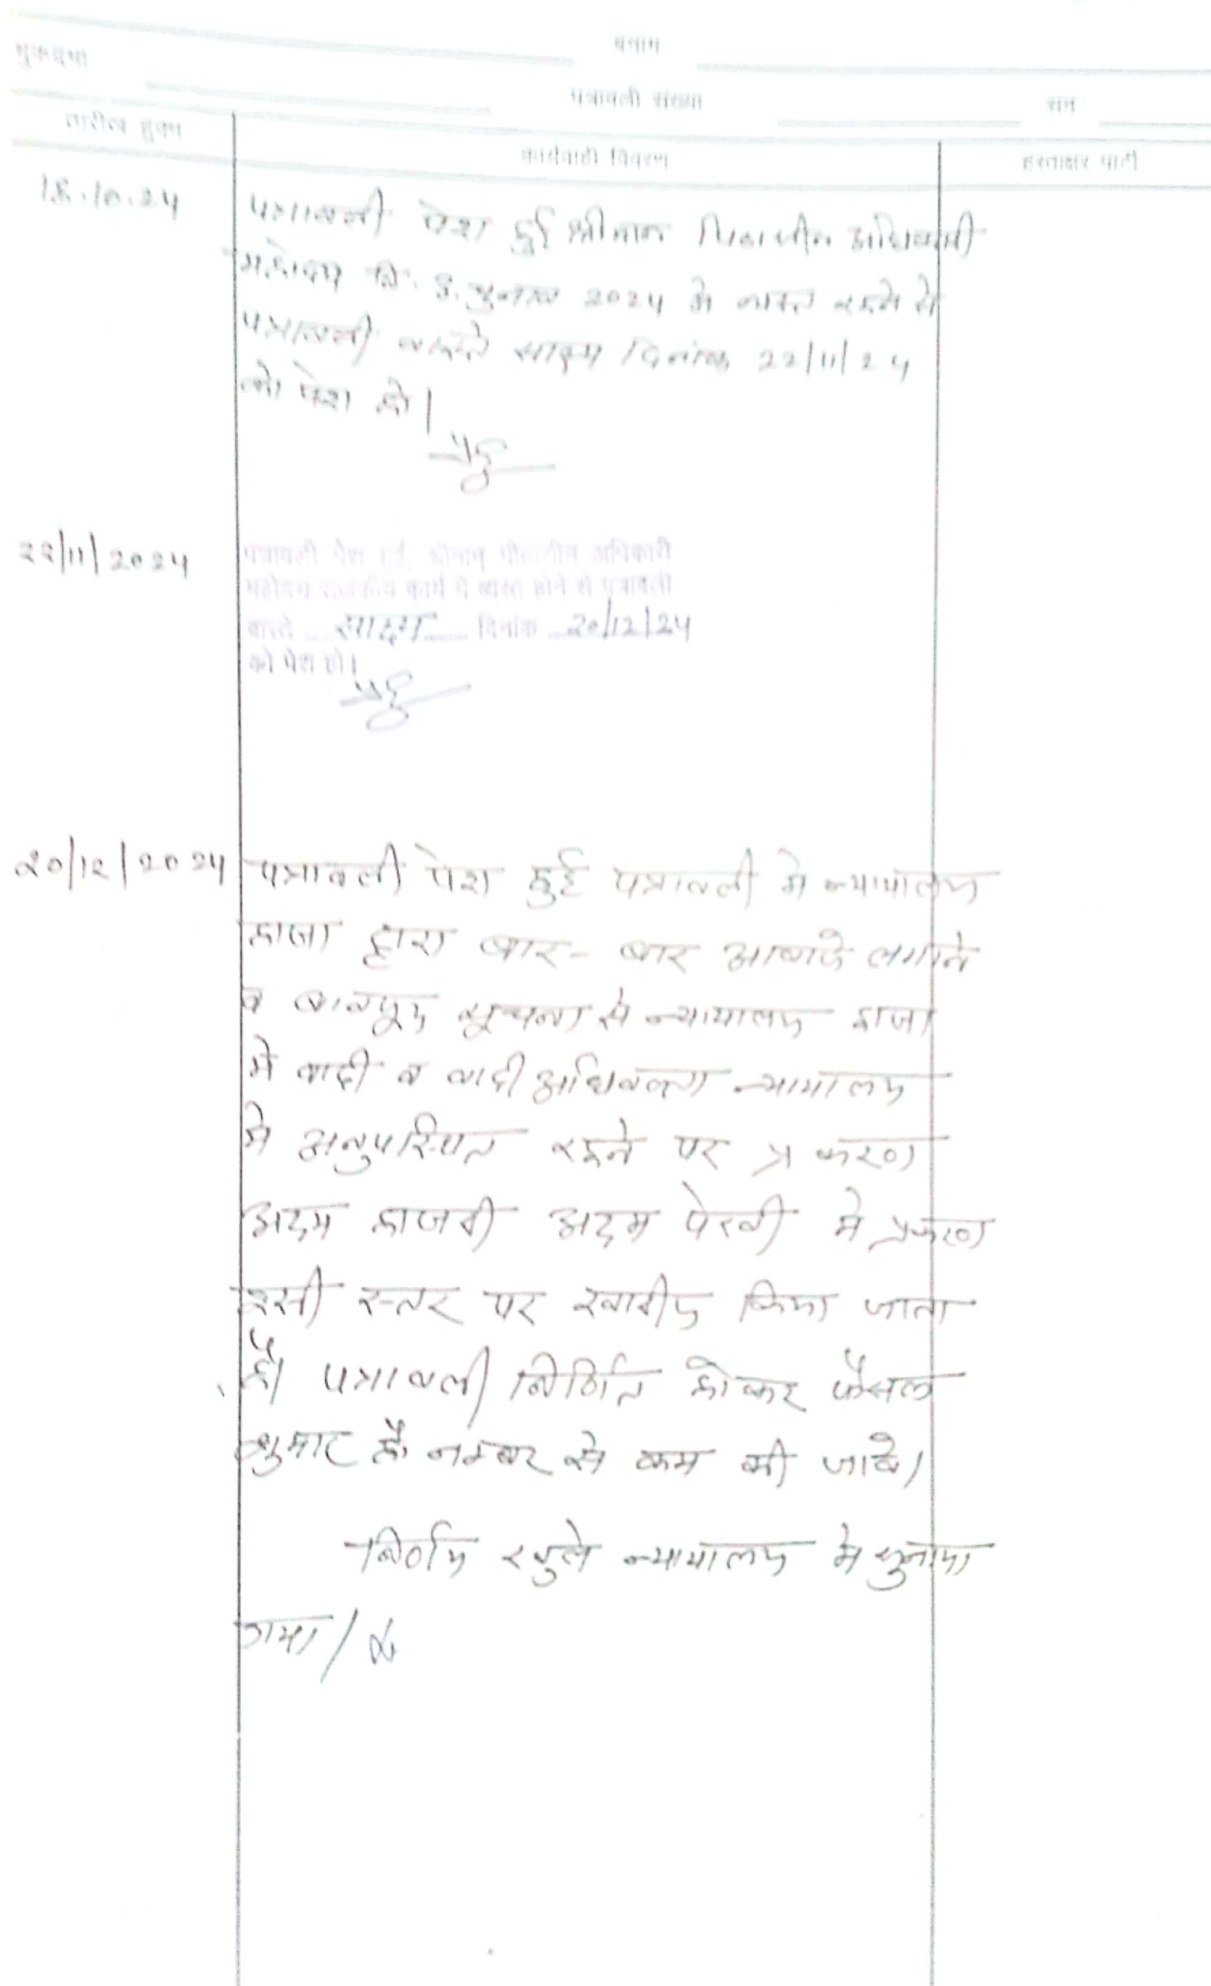 बनाम
मुकदमा
पत्रावली संख्या सन
तारीख हुक्म
कार्यवाही विवरण हस्ताक्षर पार्टी
18.10.24
पत्रावली पेश हुई श्रीमान अधिकारी
महोदय वि. स. चुनाव 2024 मे व्यस्त रहने से
पत्रावली वास्ते साक्ष्य दिनांक 22/11/24
को पेश हो।
22/11/2024
पत्रावली पेश हुई, श्रीमान् पीठासीन अधिकारी
महोदय राजकीय कार्य में व्यस्त होने से पत्रावली
वास्ते साक्ष्य दिनांक 20/12/24
को पेश हो।
20/12/2024
पत्रावली पेश हुई पत्रावली मे न्यायालय
हाजा द्वारा बार-बार आवाजे लगाने
व बावजूद सूचना से न्यायालय हाजा
मे वादी व वादी अधिवक्ता न्यायालय
मे अनुपस्थित रहने पर प्रकरण
अदम हाजरी अदम पेरवी मे प्रकरण
इसी स्तर पर खारीज किया जाता
है। पत्रावली निर्णित होकर फैसल
शुमार हो नम्बर से कम की जावे।
निर्णय खुले न्यायालय मे सुनाया
गया।